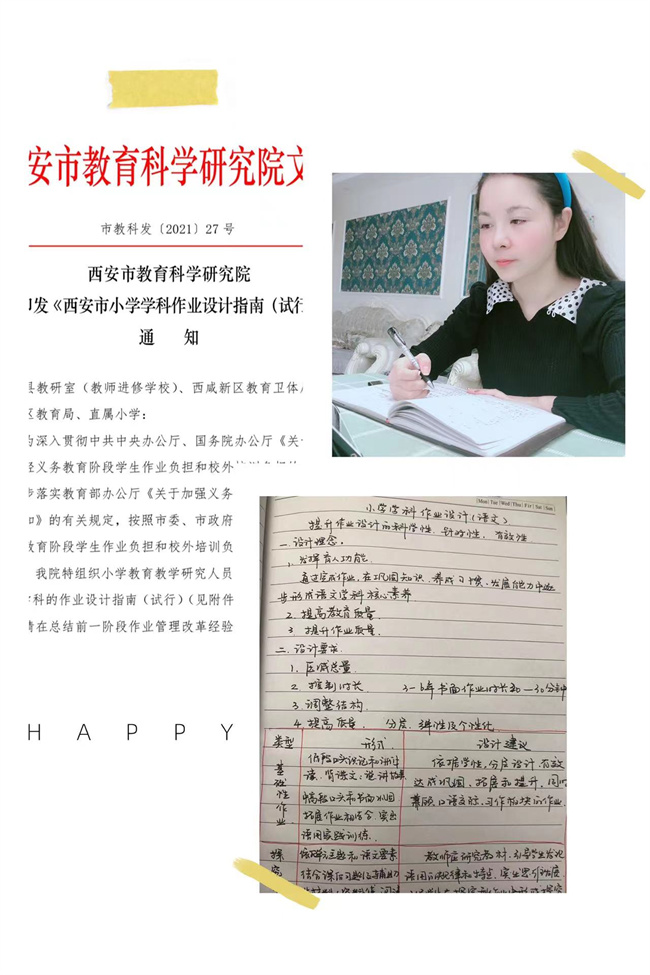 安市教育科学研究院文
市教科发〔2021〕27号
西安市教育科学研究院
印发《西安市小学学科作业设计指南（试行
通 知
县教研室（教师进修学校）、西咸新区教育卫体
区教育局、直属小学：
为深入贯彻中共中央办公厅、国务院办公厅《关
轻义务教育阶段学生作业负担和校外培训负担的
步落实教育部办公厅《关于加强义务
知》的有关规定，按照市委、市政府
教育阶段学生作业负担和校外培训负
我院特组织小学教育教学研究人员
学科的作业设计指南（试行）（见附件
请在总结前一阶段作业管理改革经验
HAPPY
Mon Tue Wed Thu Fri Sat Sun
小学学科作业设计（语文）
提升作业设计的科学性、针对性、有效性
一、设计理念。
1. 发挥育人功能.
通过完成作业，在巩固知识、养成习惯、发展能力中逐
步形成语文学科核心素养
2. 提高教育质量.
3. 提升作业质量.
二、设计要求.
1. 压减总量.
2. 控制时长 3-6年书面作业时长
3. 调整结构.
4. 提高质量. 分层、弹性及个性化.
类型 形式 设计建议
基础性作业
低段口头识记和讲
读、背语文：说、讲故事
中高段口头和书面巩固
拓展作业相结合.突出
语用实践训练.
依据学性，分层设计.有效
达成巩固、拓展和提升，同时
兼顾口语交际、习作板块的作业.
探究
结合课后习题
教师应研究教材，引导学生发现
语用的规律和特点.